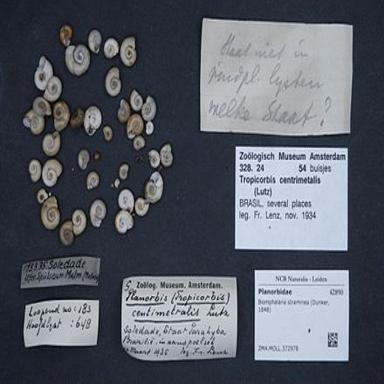 Staat niet in
rondpl. lysten
welke Staat?
Zoölogisch Museum Amsterdam
328. 24 54 buisjes
Tropicorbis centrimetalis
(Lutz)
BRASIL, several places
leg. Fr. Lenz, nov. 1934
Soledade
Loopend no: 183
Hoofdlyst: 648
Zoölog. Museum, Amsterdam.
Planorbis (Tropicorbis)
centimetralis Lutz
Soledade, Staat Parahyba,
Maart 1935 leg. Fr. Lenz
NCB Naturalis - Leiden
Planorbidae 42890
Biomphalaria straminea (Dunker,
1848)
ZMA.MOLL.372978